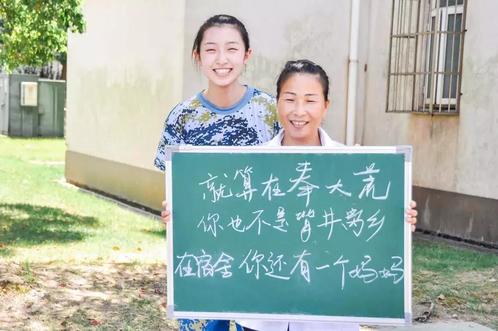 就算在奉大荒
你也不是背井离乡
在宿舍你还有一个妈妈